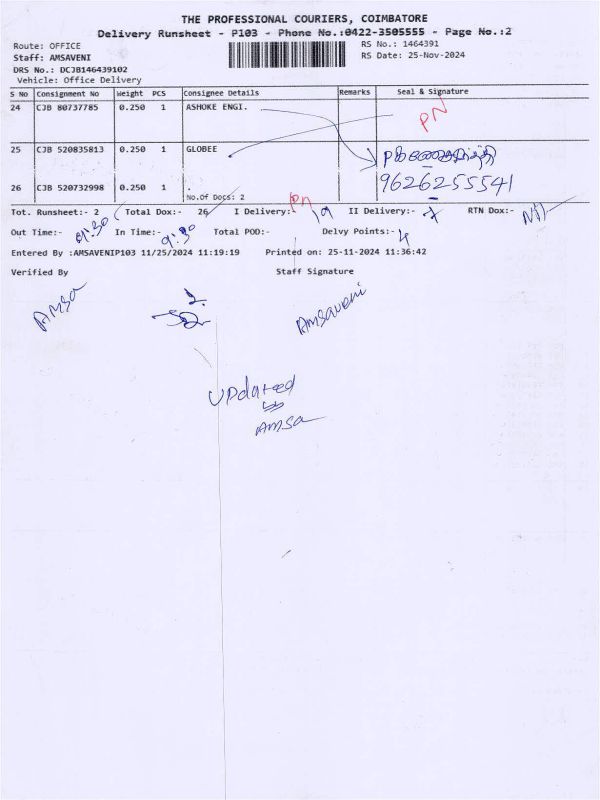 THE PROFESSIONAL COURIERS, COIMBATORE
Delivery Runsheet - P103 - Phone No.:0422-3505555 - Page No.:2
Route: OFFICE
RS No.: 1464391
Staff: AMSAVENI
RS Date: 25-Nov-2024
DRS No.: DCJB146439102
Vehicle: Office Delivery
S No Consignment No Weight PCS Consignee Details Remarks Seal & Signature
24 CJB 80737785 0.250 1 ASHOKE ENGI.
PN
25 CJB 520835813 0.250 1 GLOBEE
26 CJB 520732998 0.250 1 .
9626255541
No.Of Docs: 2
PN
Tot. Runsheet:- 2 Total Dox:- 26 I Delivery:- 19 II Delivery:- RTN Dox:- Nil
Out Time:- 9:30 In Time:- 9:30 Total POD:- Delvy Points:- 4
Entered By :AMSAVENIP103 11/25/2024 11:19:19 Printed on: 25-11-2024 11:36:42
Verified By Staff Signature
Amsa
Amsaveni
Updated
Amsa